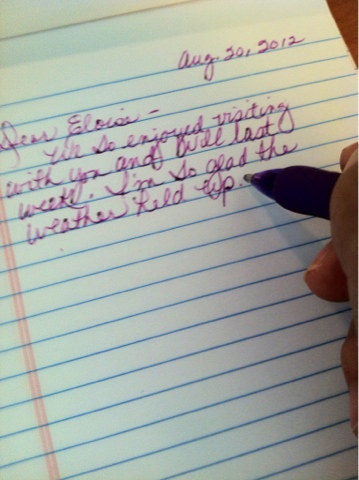 Aug 20, 2012
Dear Eloise -
We so enjoyed visiting
with you and Bill last
week. I'm so glad the
weather held up.